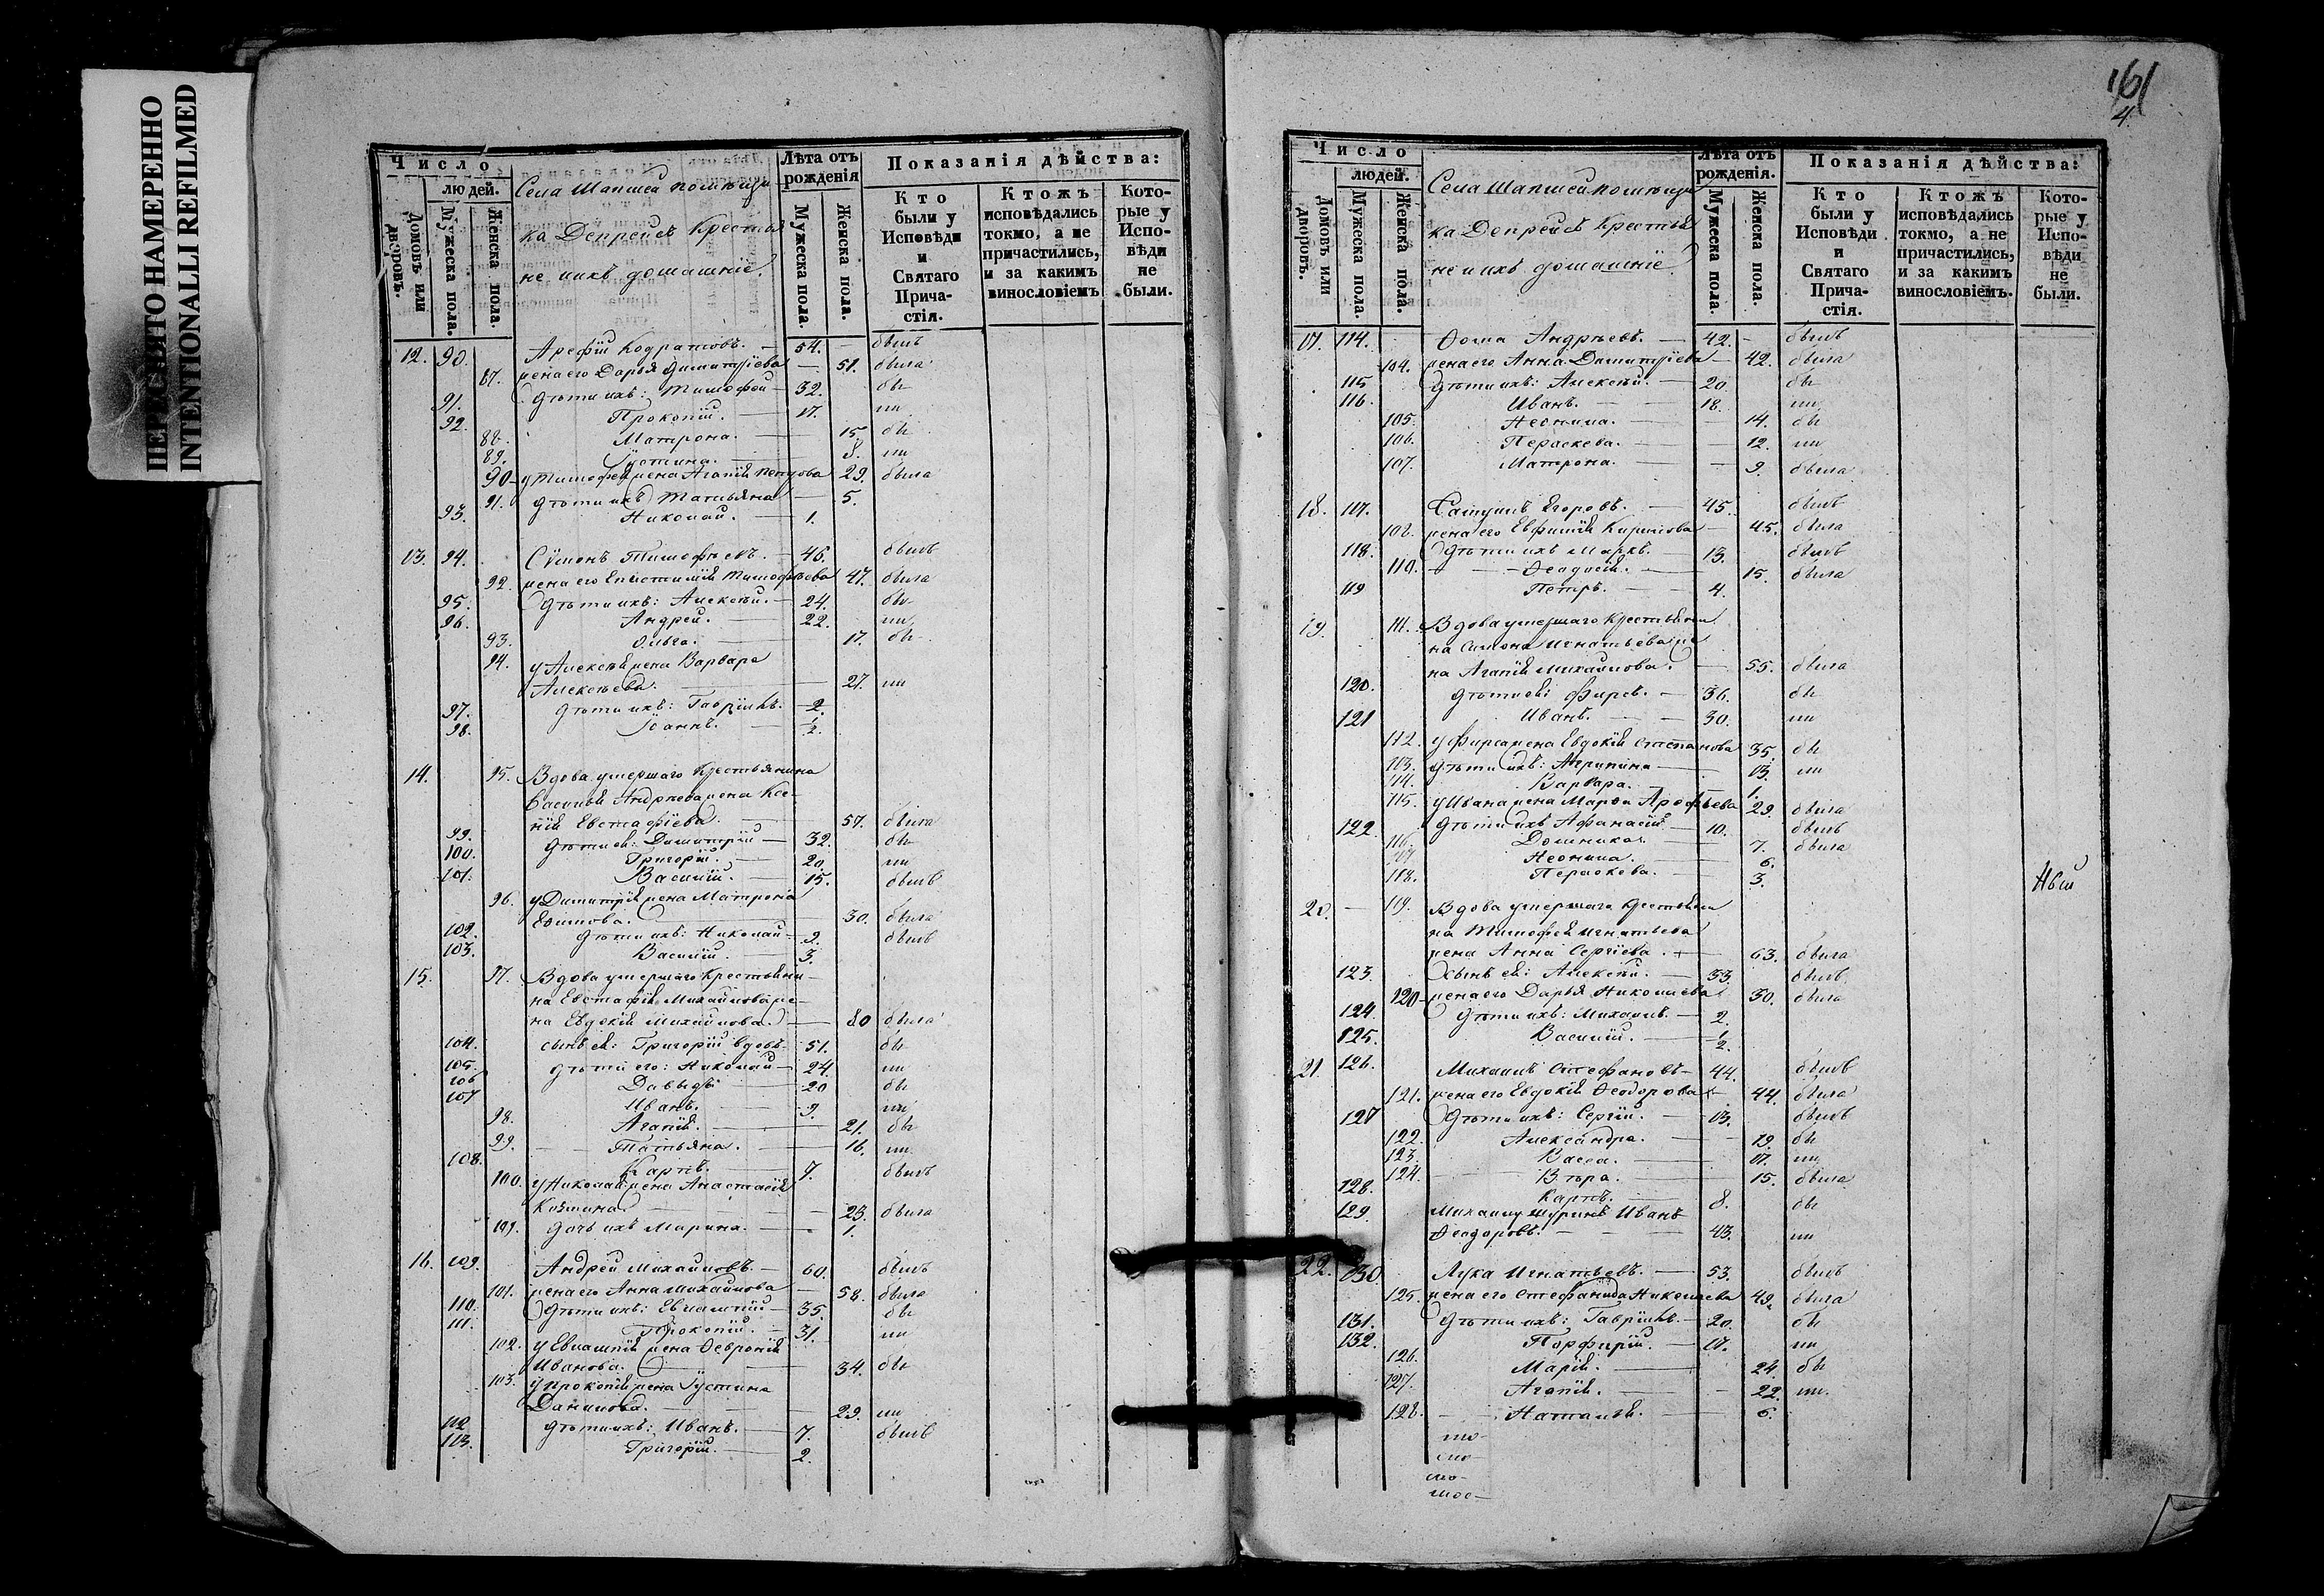 ПЕРЕСНЯТО НАМЕРЕННО
INTENTIONALLI REFILMED
Число
людей.
Домовъ или дворовъ.
Мужеска пола.
Женска пола.
Села Шапшей помѣщи
ка Депрейсъ Крестья
не и ихъ домашніе.
Лѣта отъ рожденія
Мужеска пола.
Женска пола.
Показанія дѣйства:
Кто были у Исповѣди и Святаго Прича-стія.
Ктожъ исповѣдались токмо, а не причастились, и за какимъ винословіемъ
Кото-рые у Испо-вѣди не были.
12. 90. Арефій Кодратовъ. 54. былъ
87. жена его Дарья Димитріева 51. была
91. дѣти ихъ: Тимофей 32. бы
92. Прокопій. 17. ли
88. Матрона. 15 бы
89. Іустина. 8. ли
90 у Тимофея жена Агапія Петрова 29. была
91. дѣти ихъ Татьяна 5.
93. Николай. 1.
13. 94. Сѵмонъ Тимофѣевъ. 46. былъ
92. жена его Епистимія Тимофѣева 47. была
95. дѣти ихъ: Алексѣй. 24. бы
96. Андрей. 22. ли
93. Ольга. 17. бы
94. у Алексѣя жена Варвара
Алексѣева. 27. ли
97. дѣти ихъ: Гавріилъ. 2.
98. Іоаннъ. 1/2.
14. 95. Вдова умершаго Крестьянина
Василья Андреева жена Ксе-
нія Евстафіева. 57. была
99. дѣти ея: Димитрій 32. бы
100. Григорій. 20. ли
101. Василій. 15. былъ
96. у Димитрія жена Матрона
Ефимова. 30. была
102. дѣти ихъ: Николай 9. былъ
103. Василій. 3.
15. 97. Вдова умершаго Крестьяни-
на Евстафія Михайлова же-
на Евдокія Михайлова. 80 была
104. сынъ ея: Григорій вдовъ 51. бы
105. дѣти его: Николай 24. ли
106 Давыдъ 20 бы
107 Иванъ. 9. ли
98. Агапія. 21. бы
99. Татьяна. 16. ли
108. Карпъ. 7. былъ
100. у Николая жена Анастасія
Козмина. 23. была
101. дочь ихъ Марина. 1.
16. 109. Андрей Михайловъ. 60. былъ
101. жена его Анна Михайлова 58. была
110. дѣти ихъ: Евлампій 35. бы
111. Прокопій. 31. ли
102. у Евлампія жена Февронія
Иванова. 34. бы
103. у Прокопія жена Іустина
Данилова. 29. ли
112 дѣти ихъ: Иванъ. 7. былъ
113. Григорій. 2.
161
4.
Число
людей.
Домовъ или дворовъ.
Мужеска пола.
Женска пола.
Села Шапшей помѣщи
ка Депрейсъ Крестья
не и ихъ домашніе.
Лѣта отъ рожденія.
Мужеска пола.
Женска пола.
Показанія дѣйства:
Кто были у Исповѣди и Святаго Прича-стія.
Ктожъ исповѣдались токмо, а не причастились, и за какимъ винословіемъ.
Кото-рые у Испо-вѣди не были.
17. 114. Фома Андрѣевъ. 42. былъ
104. жена его Анна Димитріева 42. была
115 дѣти ихъ: Алексѣй. 20. бы
116. Иванъ. 18. ли
105. Неонила. 14. бы
106. Пераскева. 12. ли
107. Матрона. 9. была
18. 117. Самуилъ Егоровъ. 45. былъ
108. жена его Евфимія Кирилова 45. была
118. дѣти ихъ Маркъ. 13. былъ
110. Феодосія. 15. была
119 Петръ. 4.
19. 111. Вдова умершаго Крестьяни
на Симона Игнатьева же
на Агапія Михайлова. 55. была
120. дѣти ея: Фирсъ. 36. бы
121 Иванъ. 30. ли
112. у Фирса жена Евдокія Степанова 35. бы
113. дѣти ихъ: Агрипина 13. ли
114. Варвара. 1.
115. у Ивана жена Марфа Арефьева 29. была
122. дѣти ихъ Афанасій 10. былъ
116. Домника. 7. была
117. Неонила. 6.
118. Пераскева. 3.
20. 119. Вдова умершаго Крестьяни
на Тимофея Игнатьева
жена Анна Сергіева. 63. была
123. сынъ ея: Алексѣй. 33. былъ
120 жена его Дарья Николаева 30. была
124. дѣти ихъ: Михаилъ. 2.
125. Василій. 1/2.
21 126. Михаилъ Стефановъ 44. былъ
121. жена его Евдокія Феодорова 44. была
127 дѣти ихъ: Сергій. 13. былъ
122. Александра. 19. бы
123. Васса. 17. ли
124. Вѣра. 15. была
128. Карпъ. 8. бы
129. Михаилу шуринъ Иванъ
Феодоровъ. 43. ли
22. 130 Лука Игнатьевъ. 53. былъ
125. жена его Стефанида Николаева 49. была
131. дѣти ихъ: Гавріилъ. 20. бы
132. Порфирій. 17. ли
126. Марія. 24. бы
127. Агапія. 22. ли.
128. Наталья. 6.